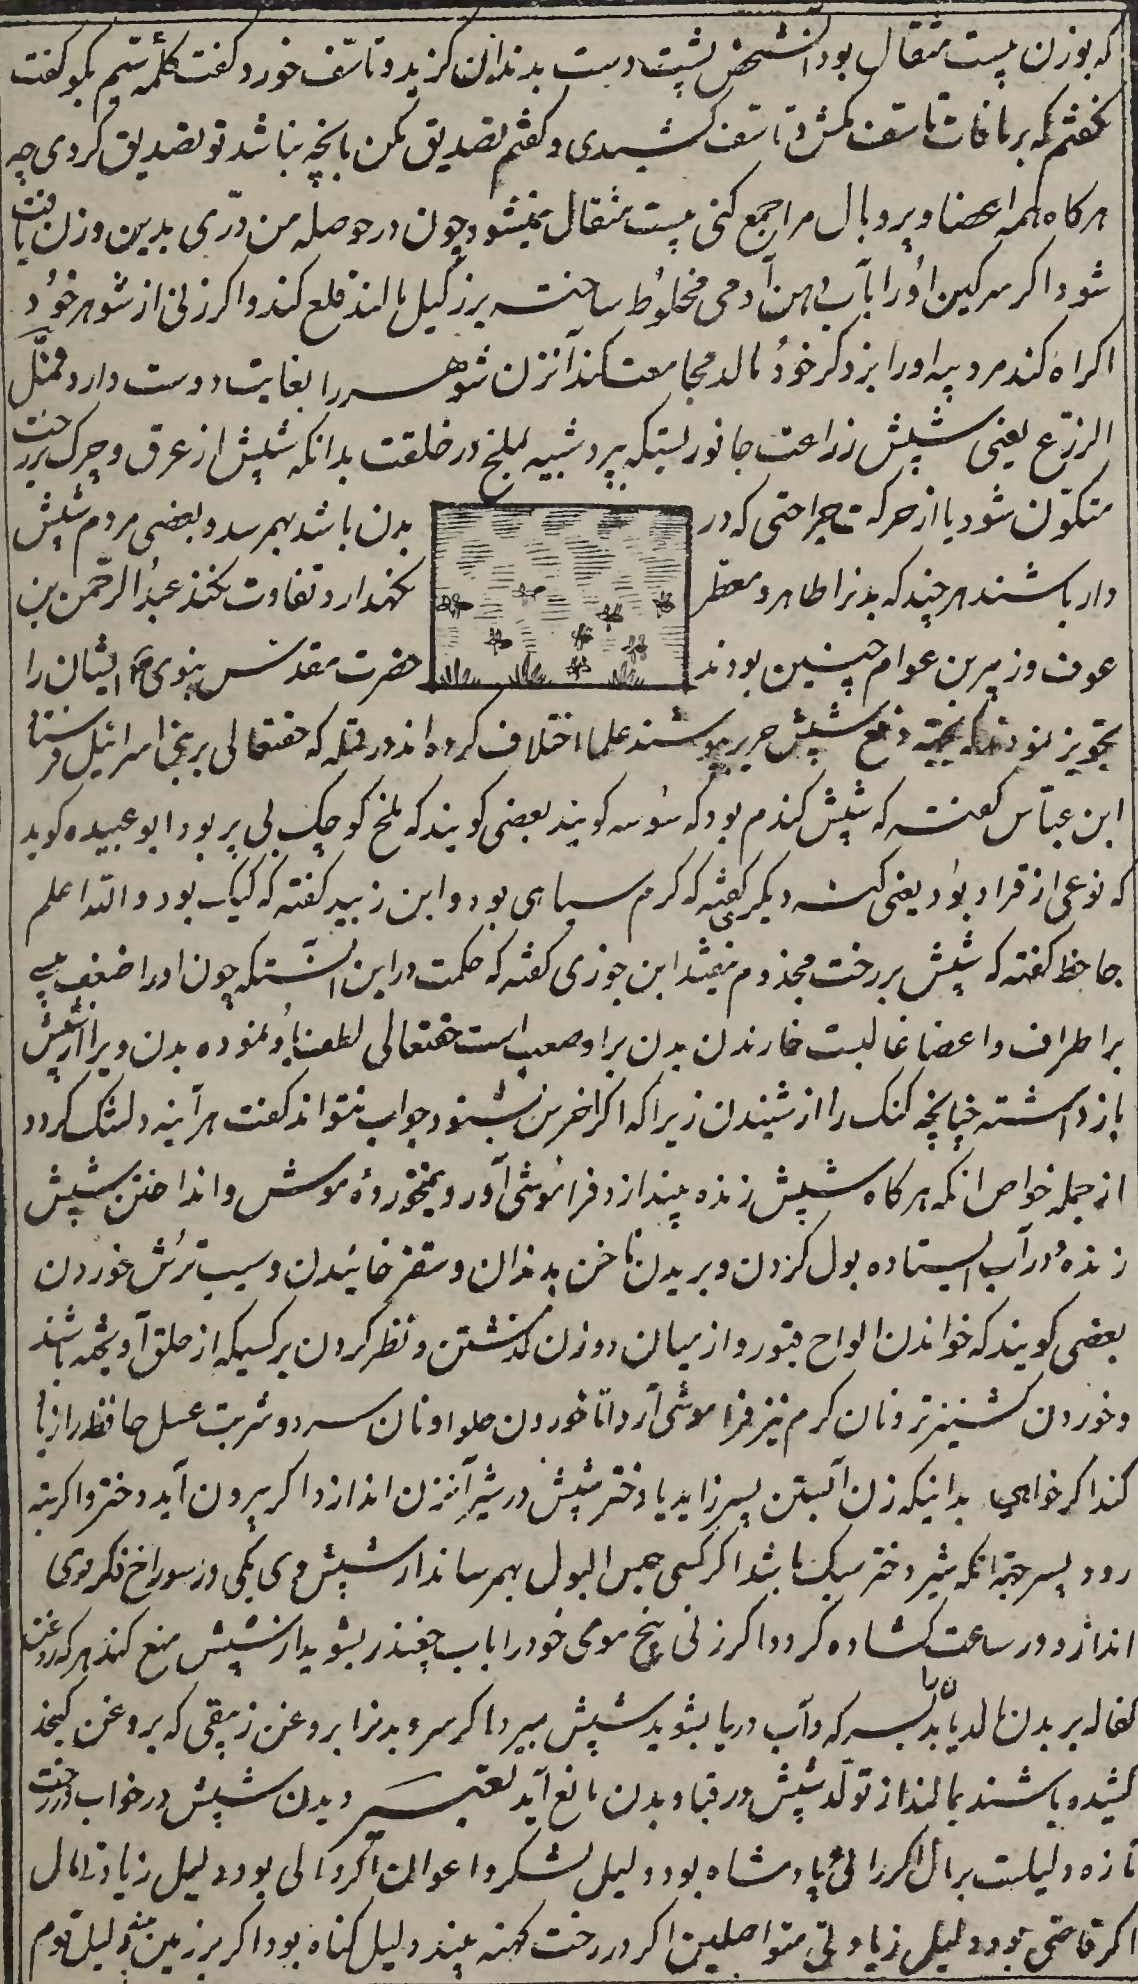 که بوزن بیست مثقال بود آنشخص پشت دست بدندان کزید و تاسف خورد و کفت کلمهٔ سیم بکو کفت
نکفتم که بر مافات تاسف مکش و تاسف کشیدی و کفتم تصدیق مکن بانچه نباشد تو تصدیق کردی چه
هر کاه همه اعضا و پر و بال مرا جمع کنی بیست مثقال نمیشود چون در حوصله من درّی بدین وزن یافت
شود اکر سرکین او را با آب دهن آدمی مخلوط ساخته بر زکیل مالند قلع کند و اکر زنی از شوهر خود
اکراه کند مرد پیه او را بر ذکر خود مالد مجامعت کند آنزن شوهر را بغایت دوست دارد قمّل
الزرع یعنی شپش زراعت جانوریستکه بپرد شبیه بملخ در خلقت بدانکه شپش از عرق و چرک بر رخت
متکون شود یا از حرکت جراحتی که در بدن باشد بهمرسد و بعضی مردم شپش
دار باشند هر چند که بدنرا طاهر و معطر نکهدارد تفاوت نکند عبد الرحمن بن
عوف و زبیر بن عوام چنین بودند حضرت مقدس نبوی ایشان را
تجویز نمود که بجهته دفع شپش حریر پوشند علما اختلاف کرده اند در قمله که حقتعالی بر بنی اسرائیل فرستاد
ابن عباس کفته که شپش کندم بود که سوسه کویند بعضی کویند که ملخ کوچک بی پر بود ابو عبیده کوید
که نوعی از قراد بود یعنی کنه دیکری کفته که کرم سیاهی بود و ابن زبید کفته که کیک بود و الله اعلم
جاحظ کفته که شپش بر رخت مجذوم نیفتد ابن جوزی کفته که حکمت در این آنستکه چون او را ضعف
بر اطراف و اعضا غالبست خاریدن بدن بر او صعب است حقتعالی لطف باو نموده بدن ویرا از شپش
باز داشته چنانچه کنک را از شنیدن زیرا که اکر اخرس بشنود جواب نتواند کفت هر آینه دلتنک کردد
از جمله خواص آنکه هر کاه شپش زنده بیندازد فراموشی آورد و نیمخوردهٔ موش و انداختن شپش
زنده و در آب ایستاده بول کردن و بریدن ناخن بدندان و سقز خائیدن و سیب ترش خوردن
بعضی کویند که خواندن الواح قبور و از میان دو زن کذشتن و نظر کردن بر کسیکه از حلق آویخته باشند
و خوردن کشنیز تر و نان کرم نیز فراموشی آرد اما خوردن حلوا و نان سرد و شربت عسل حافظه را زیاد
کند اکر خواهی بدانیکه زن آبستن پسر زاید یا دختر شپش در شیر آنزن انداز اکر بیرون آید دختر و اکر به ته
رود پسر جهته آنکه شیر دختر سبک باشد اکر کسی حبس البول بهمرساند از شپش وی یکی در سوراخ ذکر وی
اندازد در ساعت کشاده کردد اکر زنی بیخ موی خود را باب چغندر بشوید از شپش منع کند هر که روغن
لغاله بر بدن مالد یا بدن را بسرکه و آب دریا بشوید شپش بمیرد اکر سر و بدنرا بروغن زیبقی که بروغن کنجد
کشیده باشند بمالند از تولد شپش در قبا و بدن مانع آید تعبیر دیدن شپش در خواب در رخت
تازه دلیلست بر مال اکر رائی پادشاه بود دلیل لشکر و اعوان اکر والی بود دلیل زیادتی مال
اکر قاضی بود دلیل زیادتی متواصلین اکر در رخت کهنه بیند دلیل کناه بود اکر بر زمین بیند دلیل قوم